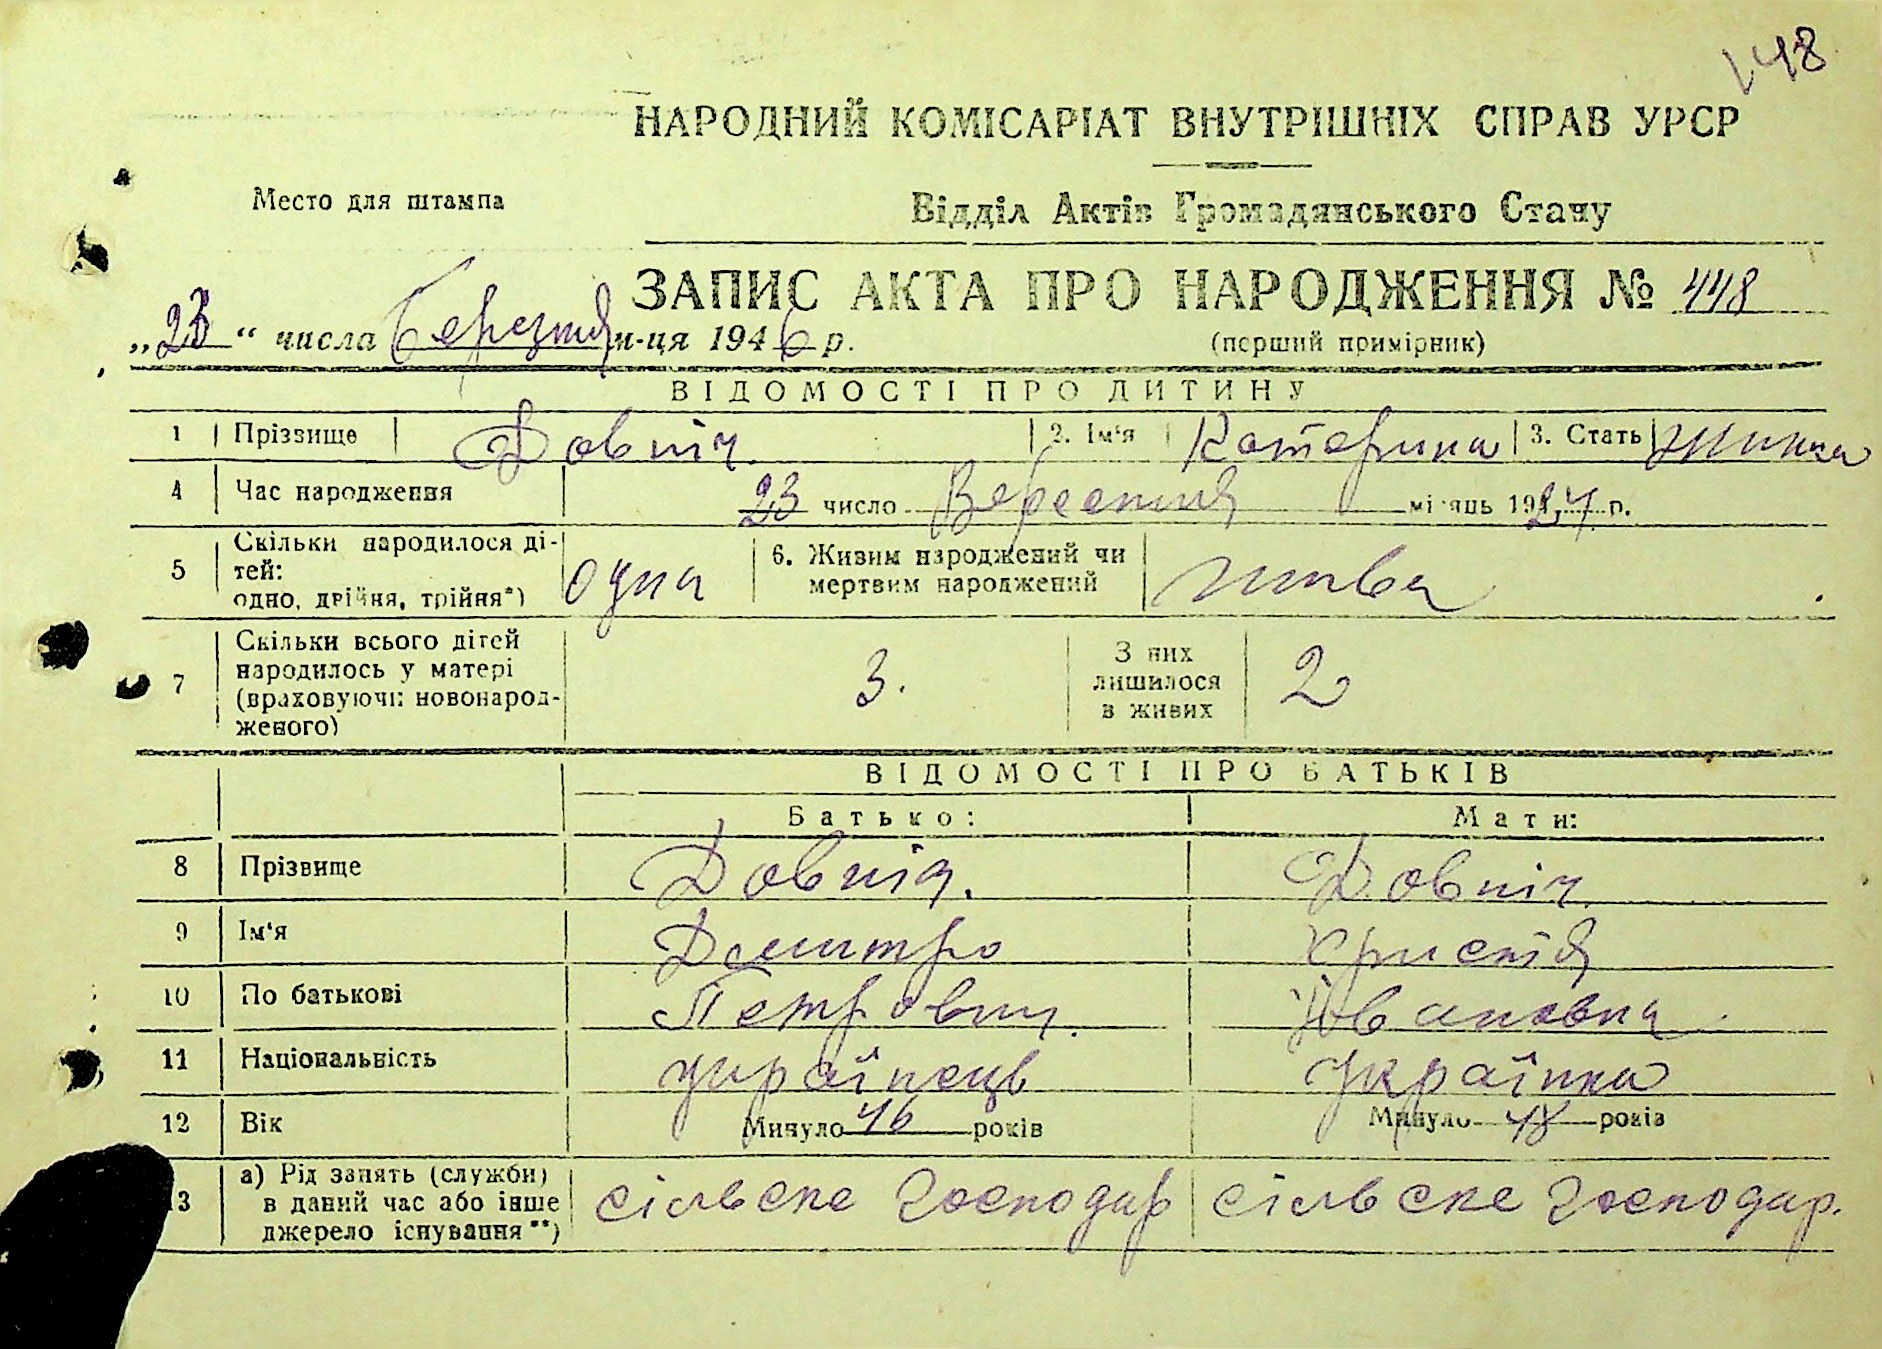 448
НАРОДНИЙ КОМІСАРІАТ ВНУТРІШНІХ СПРАВ УРСР
Место для штампа
Відділ Актів Громадянського Стану
ЗАПИС АКТА ПРО НАРОДЖЕННЯ № 448
„23“ числа Березня м-ця 1946 р.
(перший примірник)
ВІДОМОСТІ ПРО ДИТИНУ
1 Прізвище Довпіч 2. Ім'я Катерина 3. Стать жіноча
4 Час народження 23 число Вересня місяць 1924 р.
5 Скільки народилося ді-
тей:
одно, двійня, трійня*) одна 6. Живим народжений чи
мертвим народжений жива
7 Скільки всього дітей
народилось у матері
(враховуючи новонарод-
женого) 3. З них
лишилося
в живих 2
ВІДОМОСТІ ПРО БАТЬКІВ
Батько: Мати:
8 Прізвище Довпіч. Довпіч.
9 Ім'я Дмитро Христя
10 По батькові Петрович. Івановна
11 Національність українець українка
12 Вік Минуло 46 років Минуло 48 років
13 а) Рід занять (служби)
в даний час або інше
джерело існування**) сільске господар сільске господар.